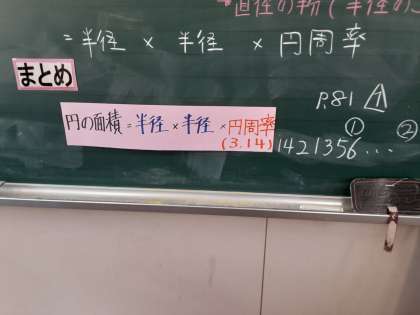 直径の
=半径 × 半径 × 円周率
まとめ
円の面積=半径×半径×円周率
(3.14)1421356...
P.81 △
① ②